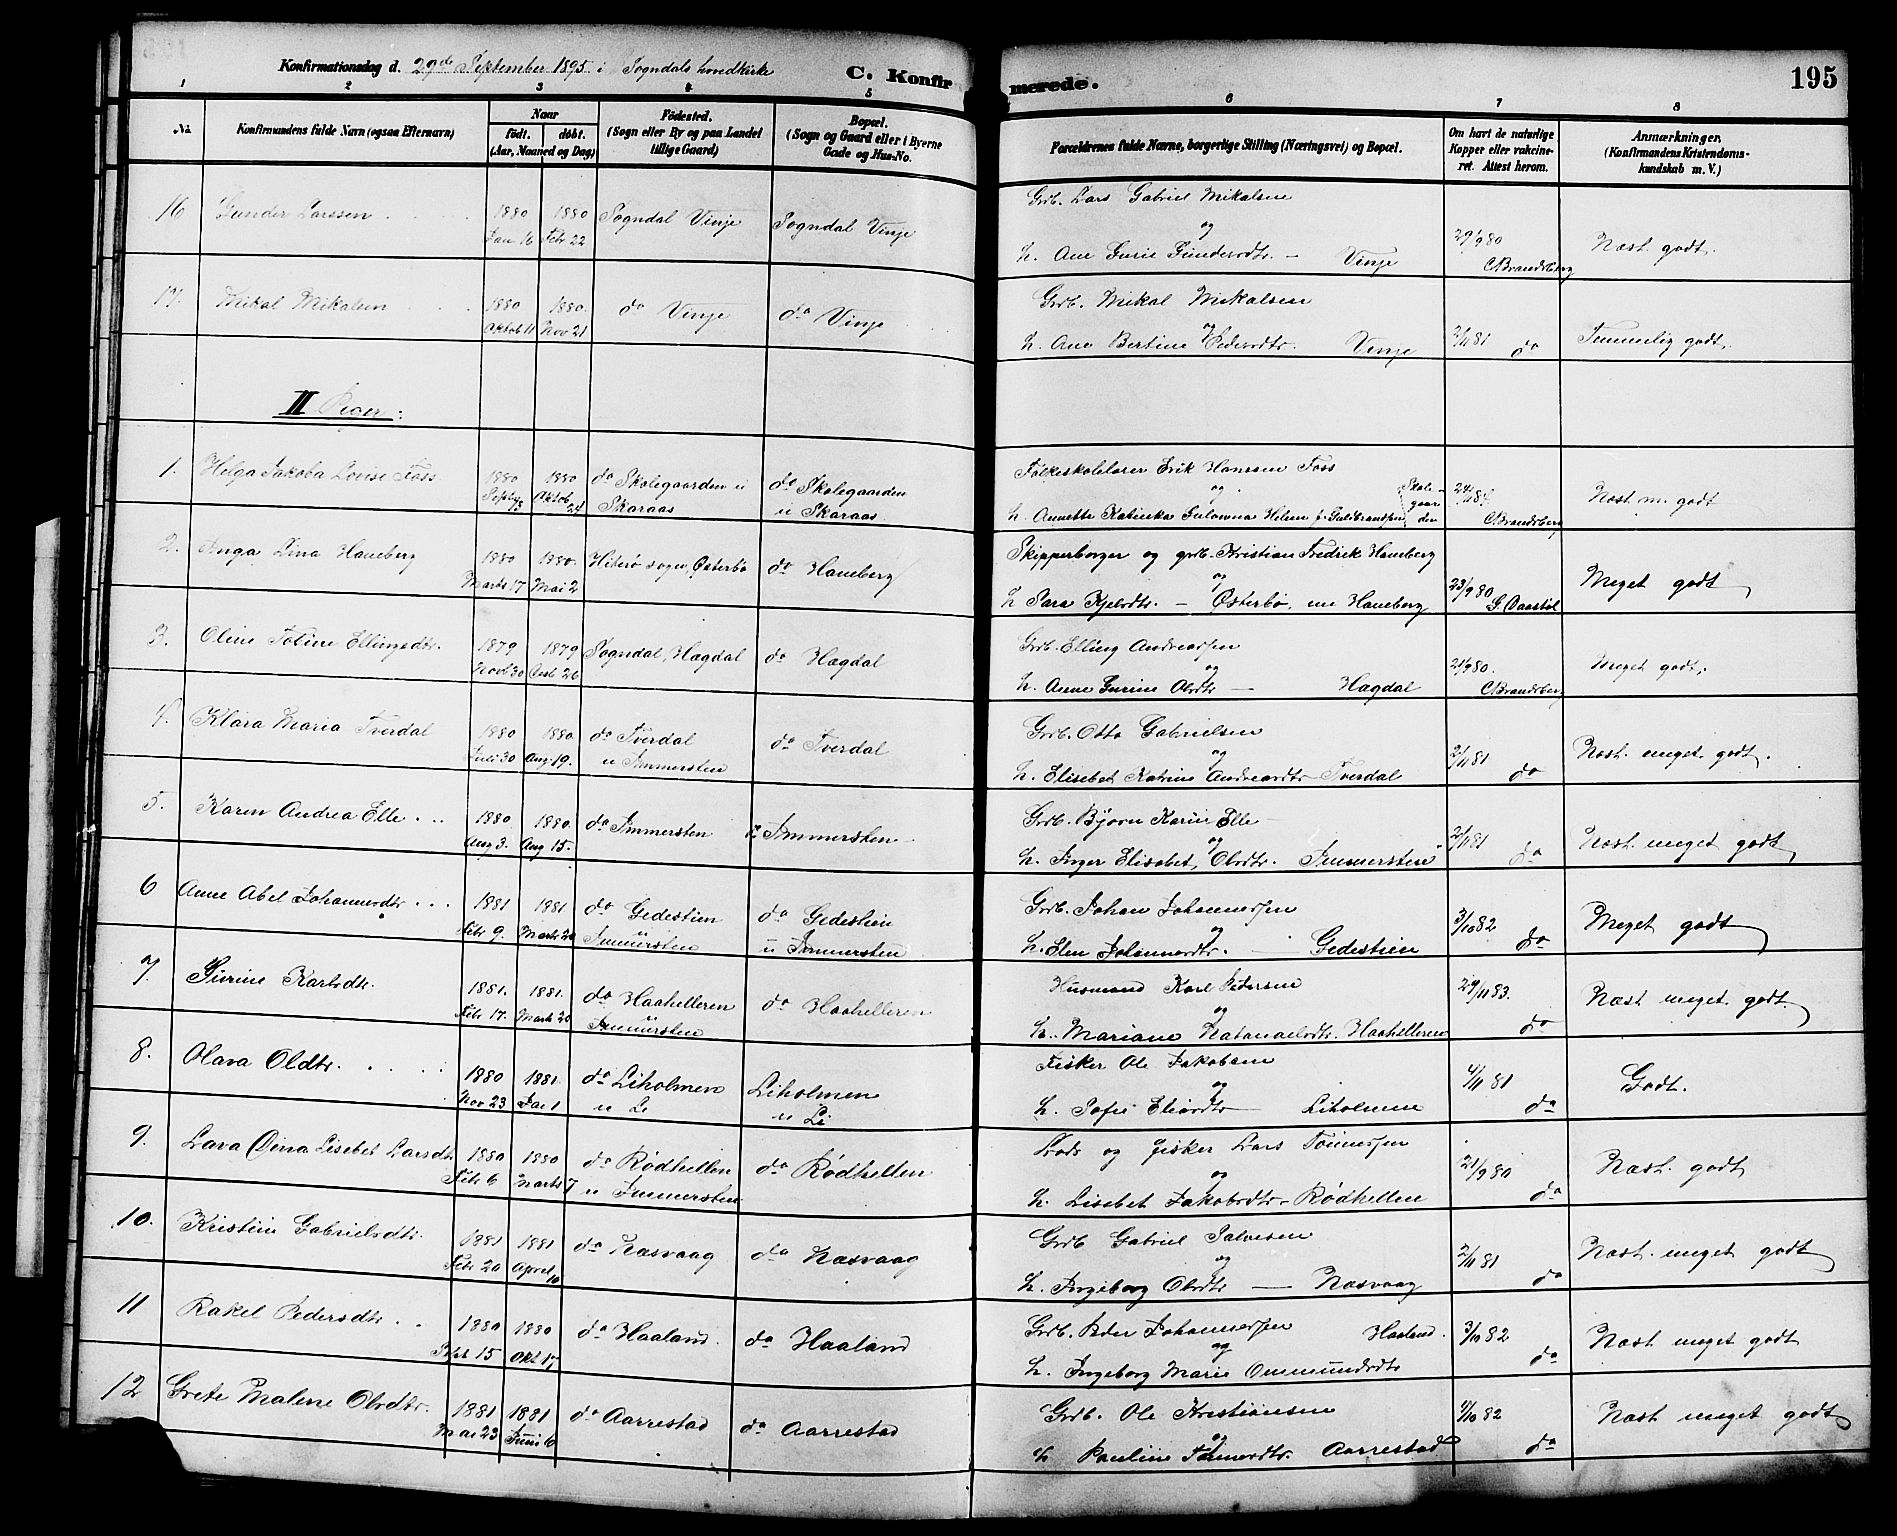 Konfirmationsdag d. 29de September 1895 i Sogndals hovedkirke
C. Konfirmerede.
195
1 2 3 4 5 6 7 8
No.
Konfirmandens fulde Navn (ogsaa Efternavn)
Naar
født. døbt.
(Aar, Maaned og Dag)
Fødested.
(Sogn eller By og paa Landet
tillige Gaard)
Bopæl.
(Sogn og Gaard eller i Byerne
Gade og Hus-No.
Forældrenes fulde Navne, borgerlige Stilling (Næringsvei) og Bopæl.
Om havt de naturlige
Kopper eller vakcine-
ret. Attest herom.
Anmærkninger,
(Konfirmandens Kristendoms-
kundskab m. V.)
16 Gunder Larssen 1880 1880 Sogndal Vinje Sogndal Vinje Grb. Lars Gabriel Mikalsen
Jan 16 Febr 22 og
h. Ane Gurie Gundersdtr. — Vinje 29/9 80 CBrandsberg Næst. godt.
17. Mikal Mikalsen 1880 1880. do Vinje do Vinje Grb. Mikal Mikalsen
Oktob 11 Nov 21 og
h. Ane Bertine Pedersdtr. Vinje 2/11 81 do Temmelig godt.
II Piger:
1. Helga Jakoba Lovise Foss 1880 1880 do Skolegaarden u do Skolegaarden Folkeskolelærer Erik Hanssen Foss
Oktob 24 Skaraas u Skaraas og Skole-gaar-den
h. Annette Katinka Helene f. Guldbrandsen 24/11 84 CBrandsberg Næst m. godt
2. Inga Lina Haneberg 1880 1880. Hiterø sogn, Østerbø do Haneberg Skipperborger og grb. Kristian Fredrik Haneberg
Marts 17 Mai 2 og
h Sara Kjelsdtr. — Østerbø, nu Haneberg 23/9 80 G. Daastøl Meget godt
3. Oline Toline Ellingsdtr. 1879 1879 Sogndal, Hægdal do Hægdal Grb. Elling Andreassen
Novb 30 Decb 26 og
h. Anne Gurine Olsdtr — Hægdal 21/9 80. CBrandsberg Meget godt.
4. Klara Maria Tverdal 1880 1880 do Tverdal do Tverdal Grb. Otto Gabrielsen
Juli 30 Aug 19. u Immersten og
h. Elisebet Katrine Andreasdtr Tverdal 2/11 81 do Næst. meget godt.
5. Karen Andrea Elle 1880 1880. do Immersten do Immersten Grb. Bjørn Karin Elle
Aug 3. Aug 15. og
h. Inger Elisabet Olsdtr. Immersten 2/11 81 do Næst meget godt
6 Anne Abel Johannesdtr 1881 1881 do Gedestien do Gedestien Grb. Johan Johannessen
Febr 9. Marts 20 u Immersten u Immersten og
h. Elen Johannesdtr. Gedestien 3/10 82 do Meget godt
7. Sirine Karlsdtr. 1881. 1881. do Haahelleren do Haahelleren Husmand Karl Petersen
Febr 17. Marts 20 u Immersten og
h. Mariane Natanaelsdtr. Haahelleren 29/11 83. do Næst meget godt
8. Olava Oldtr. 1880 1881 do Liholmen Liholmen Fisker Ole Jakobsen
Nov 23 Jan 1 u Li u Li og
h. Sofie Eliasdtr Liholmen 4/11 81 do Godt.
9. Lava Dina Lisebet Larsdtr 1880 1880 do Rødhellen do Rødhellen Lods og fisker Lars Tønnessen
Febr 6 Marts 7 u Immersten og
h. Lisebet Jakobsdtr. Rødhellen 21/9 80 do Næst. godt
10. Kristine Gabrielsdtr. 1881 1881 do Næsvaag do Næsvaag Grb Gabriel Salvesen
Febr 20 April 10 og
h. Ingeborg Olsdtr — Næsvaag 2/11 81 do Næst. meget godt
11 Rakel Pedersdtr 1880 1880 do Haaland. do Haaland Grb. Peder Johannessen Haaland.
15 Okt 17 og
h. Ingeborg Marie Ommundsdtr 3/10 82 do Næst meget godt
12 Grete Malene Olsdtr. 1881 1881 do Aarrestad do Aarrestad Grb. Ole Kristiansen
Mai 23 Juni 6 og
h Pauline Tønnesdtr. Aarrestad 4/10 82 do Næst meget godt